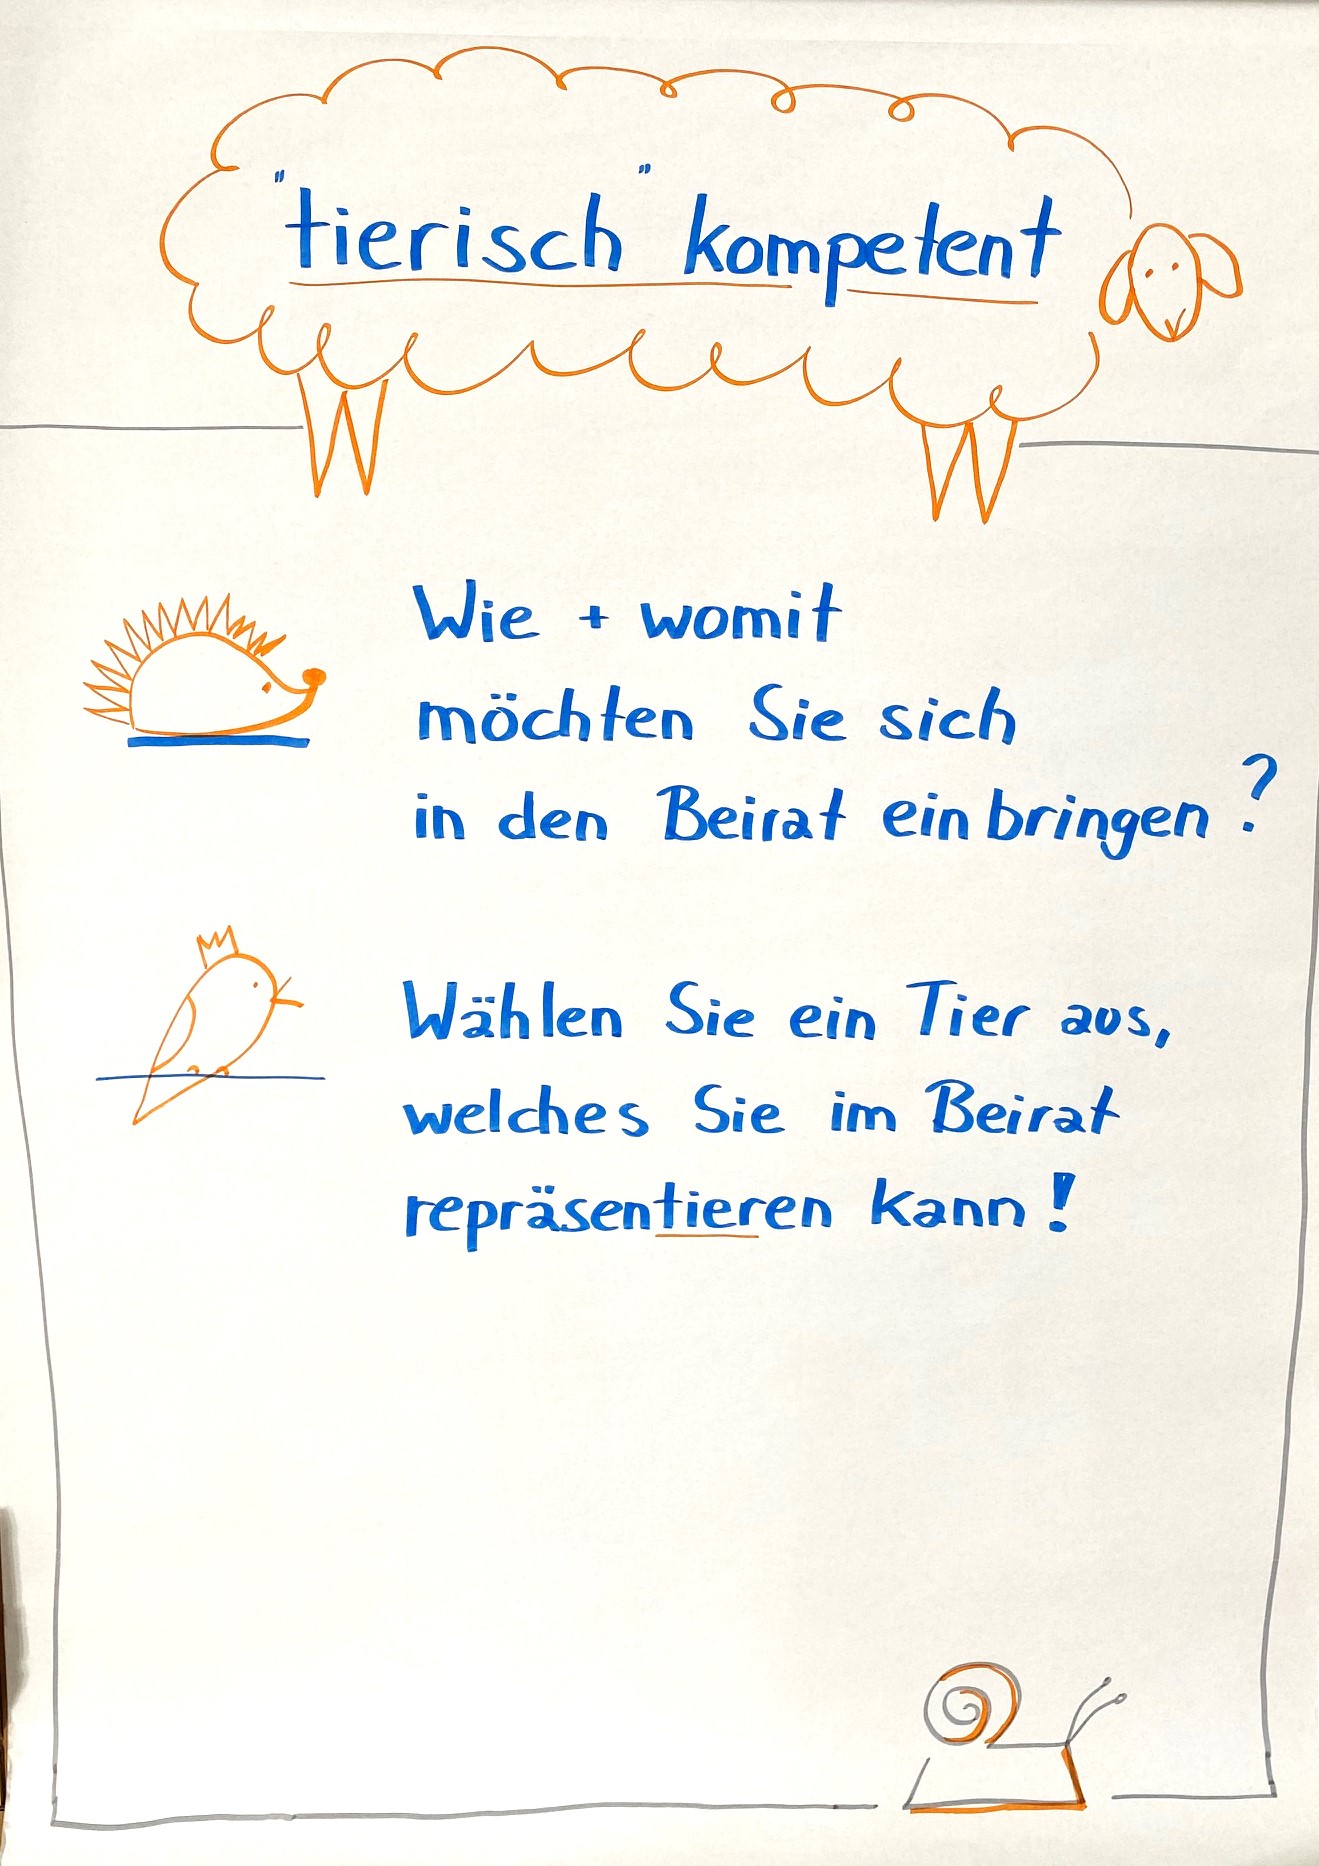 "tierisch" kompetent
Wie + womit
möchten Sie sich
in den Beirat einbringen?
Wählen Sie ein Tier aus,
welches Sie im Beirat
repräsentieren kann!